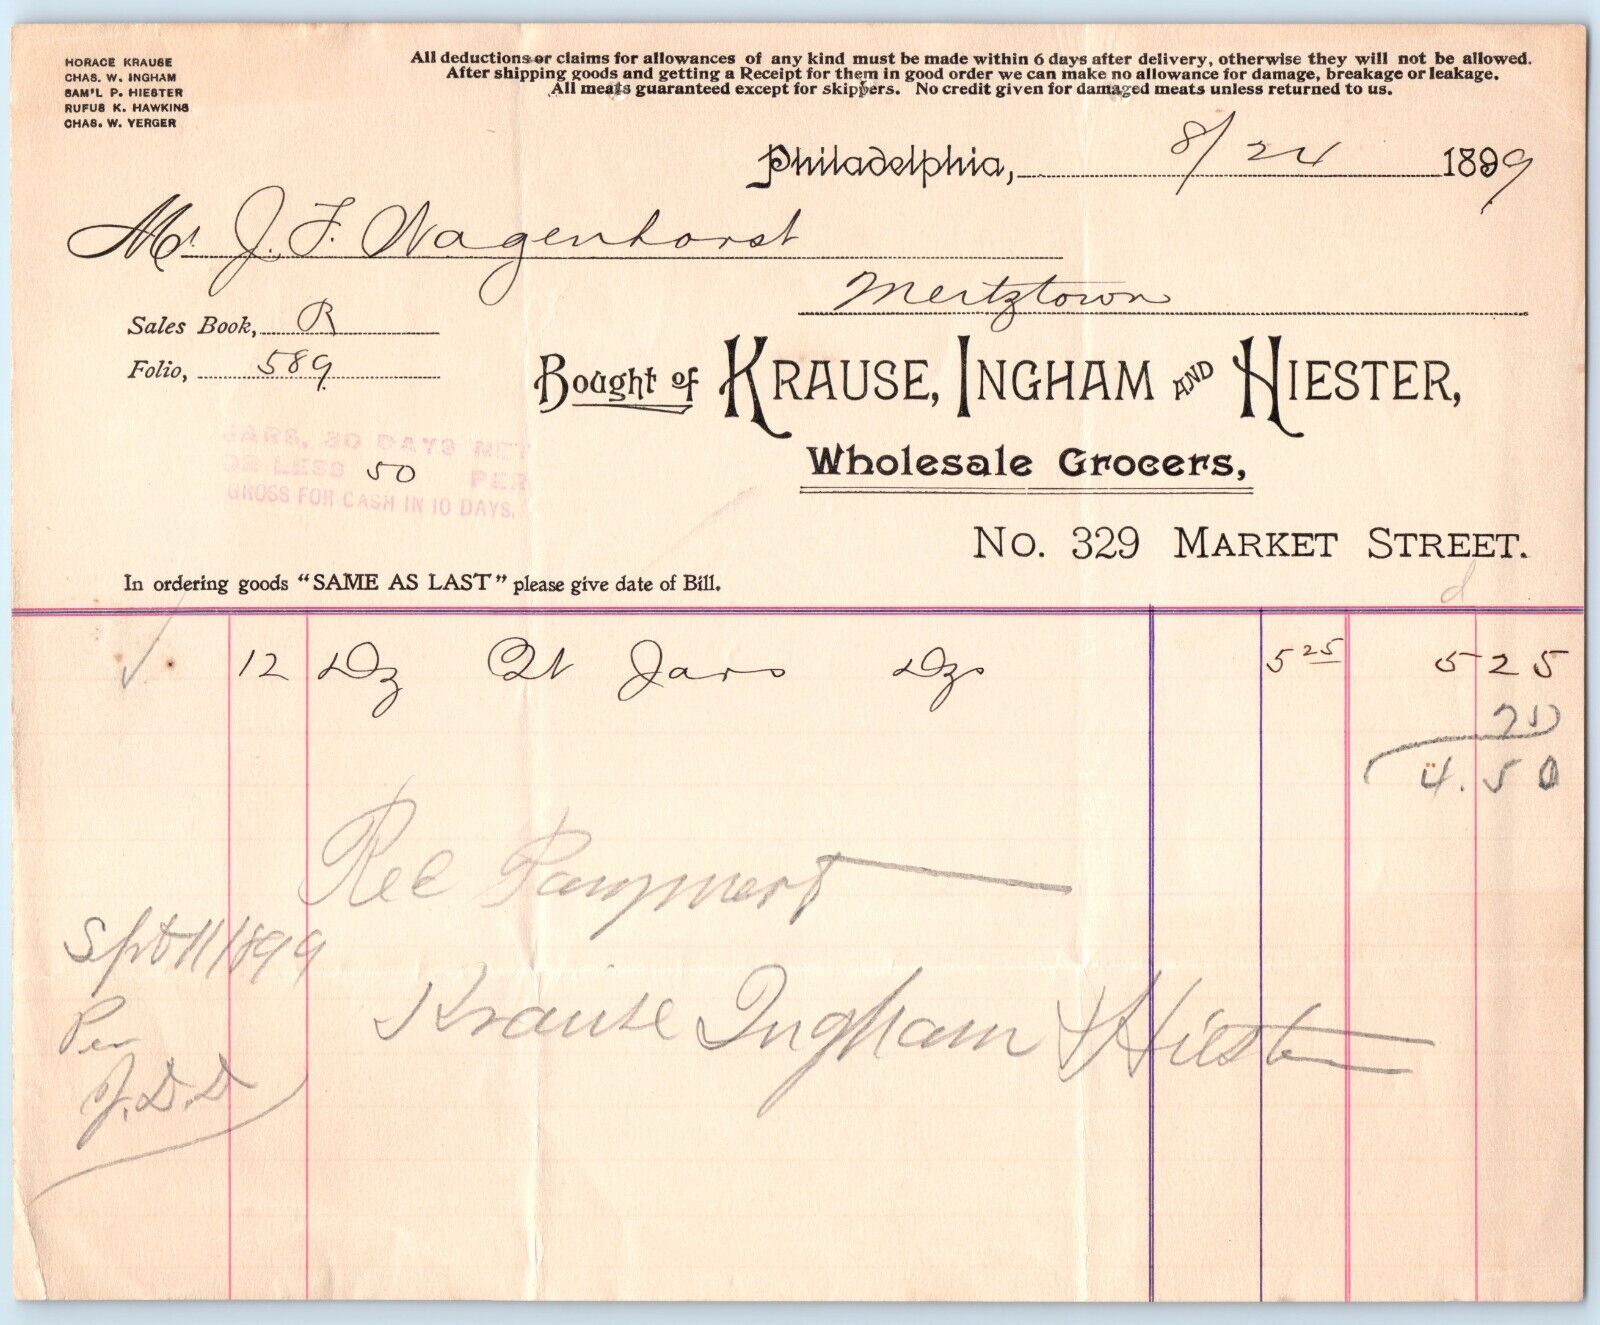 HORACE KRAUSE
CHAS. W. INGHAM
SAM'L P. HIESTER
RUFUS K. HAWKINS
CHAS. W. YERGER
All deductions or claims for allowances of any kind must be made within 6 days after delivery, otherwise they will not be allowed.
After shipping goods and getting a Receipt for them in good order we can make no allowance for damage, breakage or leakage.
All meats guaranteed except for skippers. No credit given for damaged meats unless returned to us.
Philadelphia, 8/24 1899
Mr. J. F. Wagenhorst
Mertztown
Sales Book, R
Folio, 589
Bought of KRAUSE, INGHAM AND HIESTER,
Wholesale Grocers,
No. 329 MARKET STREET.
JARS, 30 DAYS NET
OR LESS 50 PER
GROSS FOR CASH IN 10 DAYS.
In ordering goods "SAME AS LAST" please give date of Bill.
12 Dz Qt Jars Dzs 5 25 5 25
4.50
Rec Payment
Spt 11 1899
Per
J.D.D
Krause Ingham & Hiester